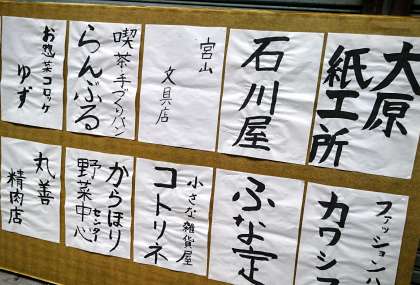 大原
紙工所
石川屋
宮山
文具店
喫茶手づくりパン
らんぶる
お惣菜コロッケ
ゆず
ファッションハ
カワシマ
ふな定
小さな雑貨屋
コトリネ
からほり
野菜中心
センター
丸善
精肉店